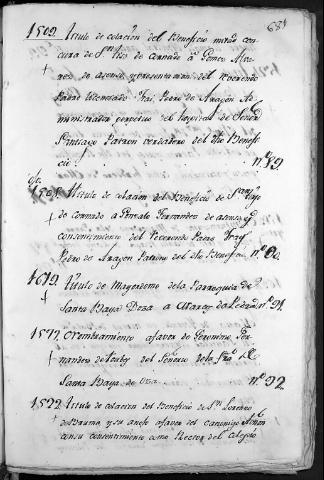 681
1502 Titulo de colacion del Beneficio mitad con
cura de Sn de Cornado à Gomez Alva
res, de acenso, y presentacion del Reverendo
Padre Licenciado Frai Pedro de Aragon Ad
ministrador perpetuo del Hospital de Señor
Santiago Patron verdadero del dho Benefi
cio . . . nº 89.
1501 Titulo de colacion del Beneficio de
de Cornado a Gonzalo Fernandez de acenso, y
consentimiento del Reverendo Padre Fray
Pedro de Aragon Patrono del dho Beneficio nº 90.
1619. Titulo de Mayordomo de la Parroquia de
Santa Baya Doza a nº 91.
Nombramiento afavor de Geronimo Fer
nandez de del Señorio de la de
Santa Baya de Oza nº 92
1522 Titulo de colacion del Beneficio de Sn Lorenzo
de Bruma, y su anejo afavor del Canonigo
con su consentimiento como Rector del Colegio